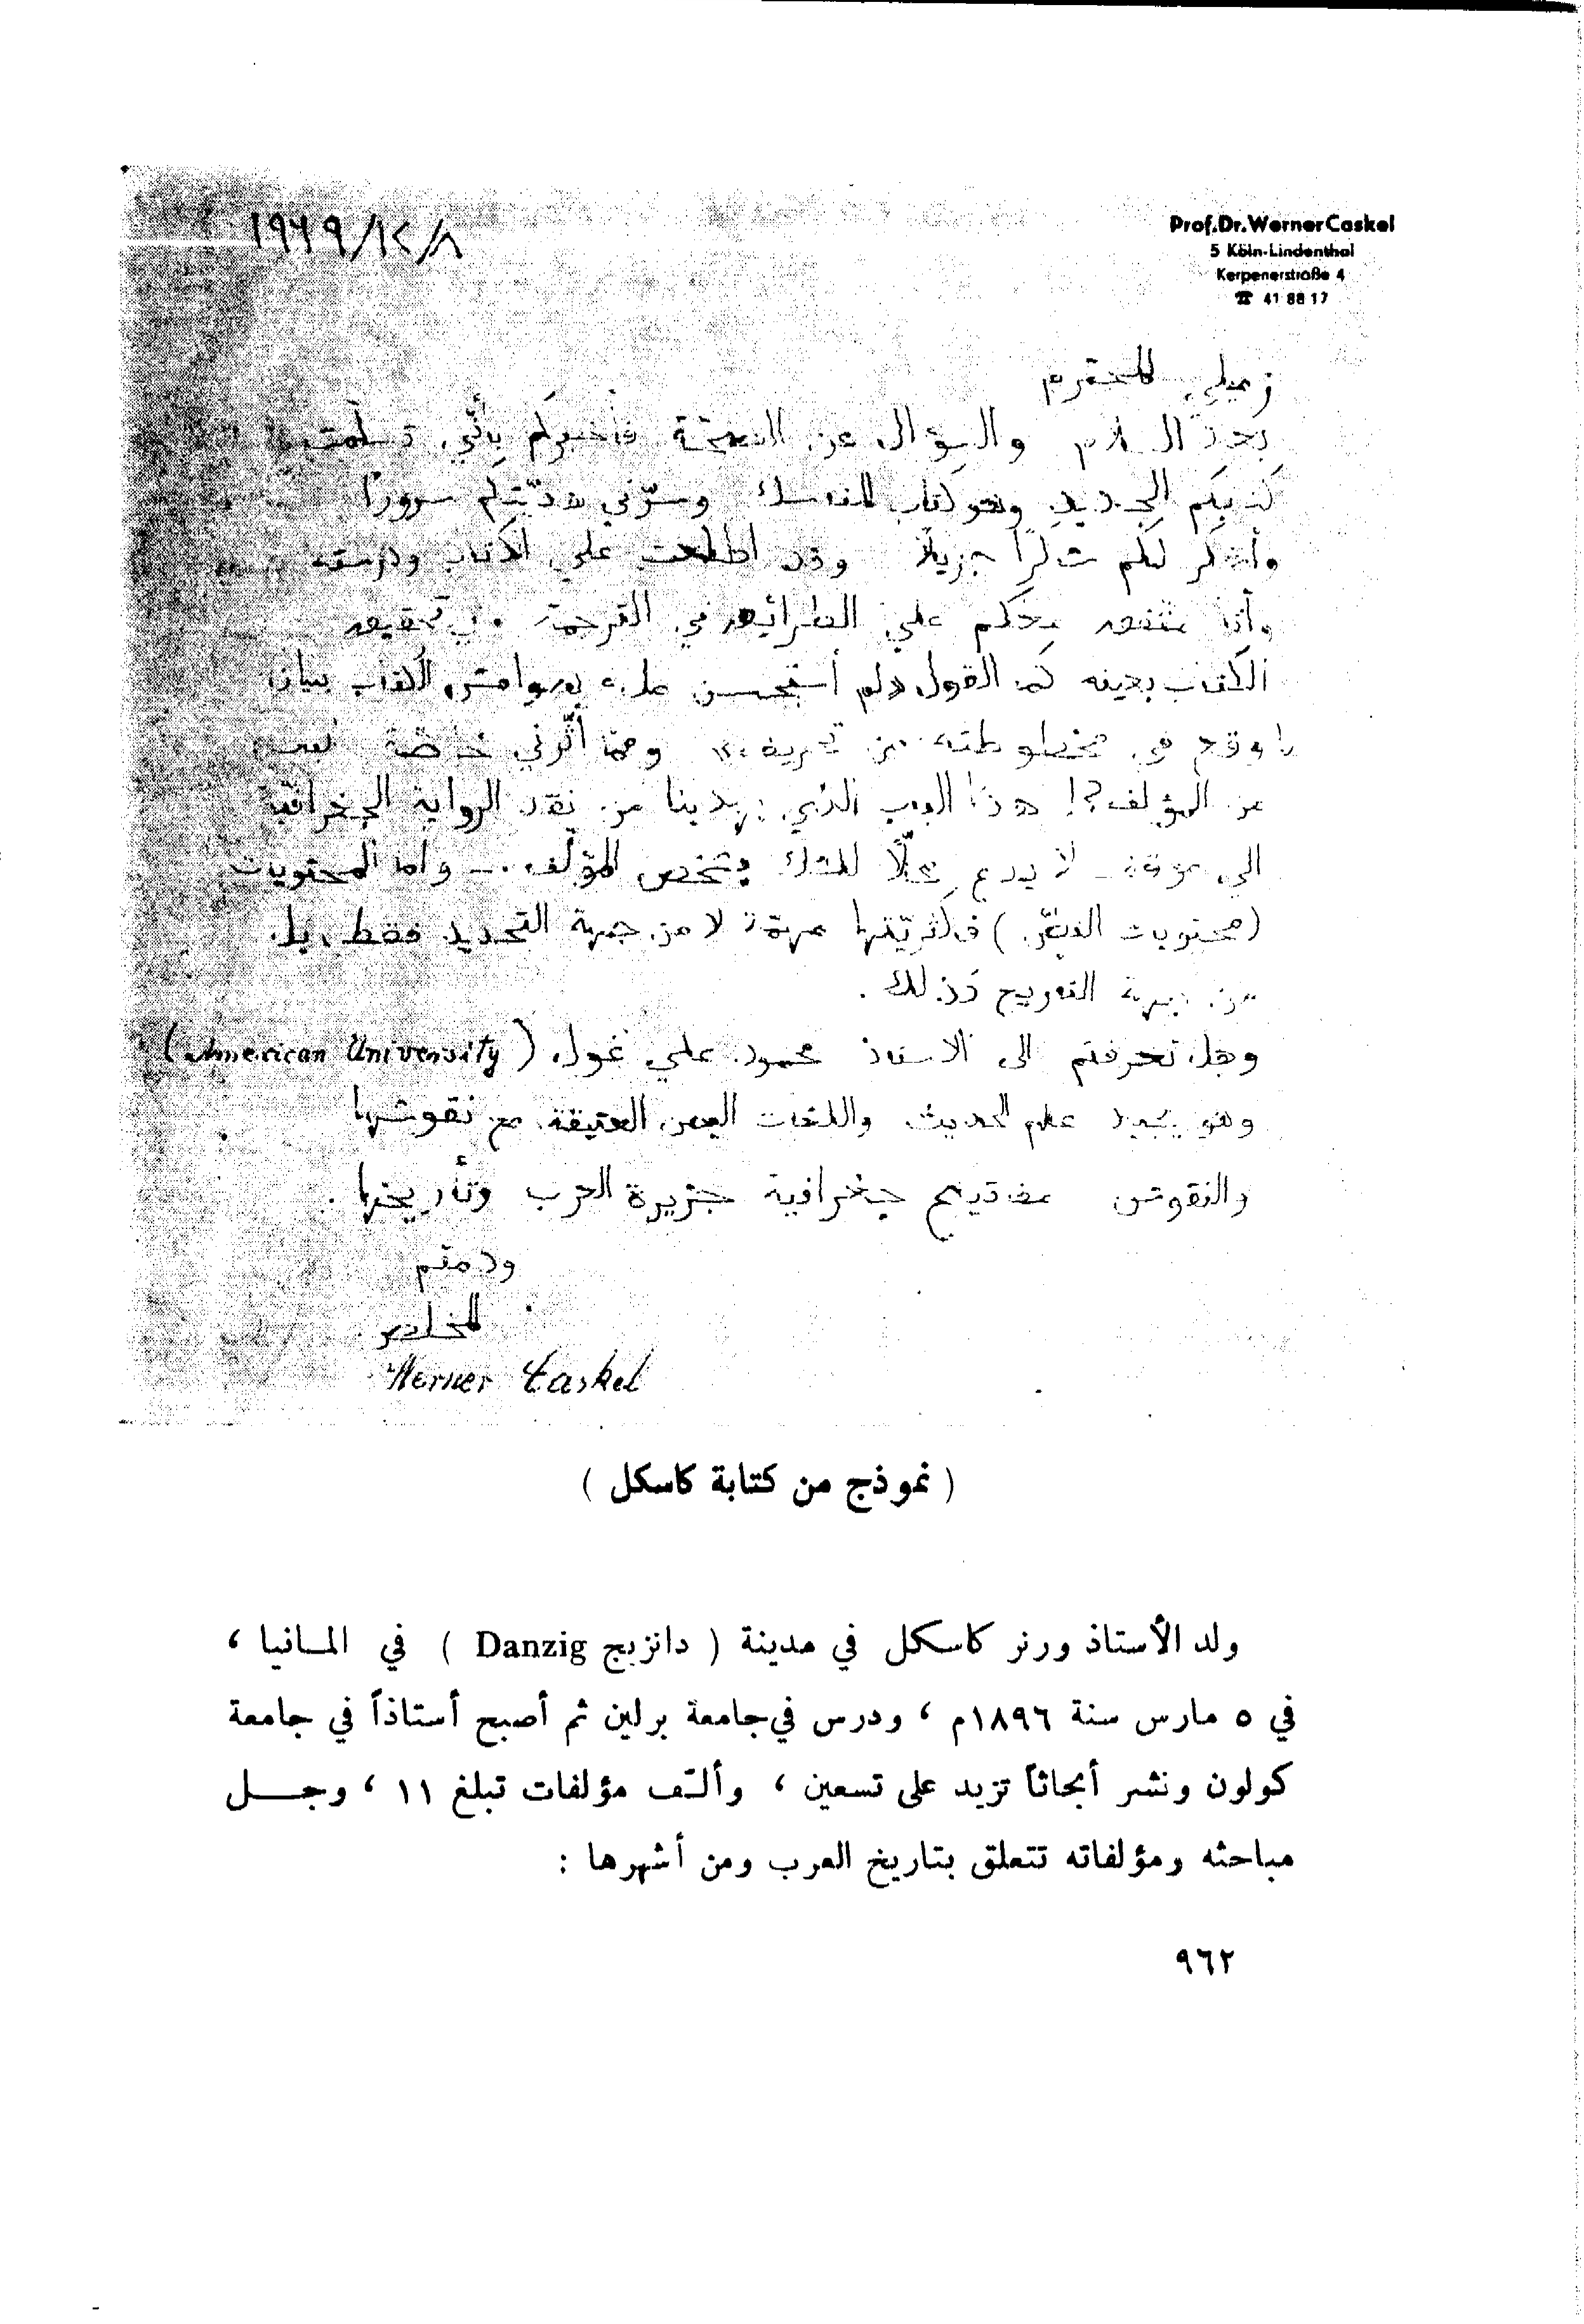 ١٩٦٩/١٢/٨
Prof.Dr.Werner Caskel
5 Köln-Lindenthal
Kerpenerstraße 4
☎ 41 88 17
زميلي المحترم
بعد السلام والسؤال عن الصحّة فأخبركم بأنّي تسلّمت
كتابكم الجديد وهو كتاب المناسك وسرّني هديّتكم سرورًا
وأشكر لكم شكرًا جزيلًا وقد اطلعت على الكتاب ودرسته
وأنا متفق معكم على الطرائق في الترجمة في تحقيق
الكتاب بعينه القول ولم أستحسن ملء هوامش الكتاب ببيان
ما وقع في مخطوطته من تحريف وممّا أثّرني خاصّة
عن المؤلف؟! هذا الذي من نقد الرواية الجغرافيّة
الى لا يدع محلًّا للشك بشخص المؤلّف . ــ واما المحتويات
(محتويات) فأكثريّتها مهمّة لا من جهة التحديد فقط بل
من جهة كذلك .
وهل تعرفتم الى الاستاذ محمود علي غول (American University)
وهو يجيد علم الحديث واللغات اليمن العتيقة مع نقوشها
والنقوش مفاتيح جغرافية جزيرة العرب وتأريخها .
ودمتم
المخلص
Werner Caskel
( نموذج من كتابة كاسكل )
ولد الأستاذ ورنر كاسكل في مدينة ( دانزيج Danzig ) في المـانيا ،
في ٥ مارس سنة ١٨٩٦م ، ودرس في جامعة برلين ثم أصبح أستاذاً في جامعة
كولون ونشر أبحاثاً تزيد على تسعين ، وألّف مؤلفات تبلغ ١١ ، وجـــل
مباحثه ومؤلفاته تتعلق بتاريخ العرب ومن أشهرها :
٩٦٢